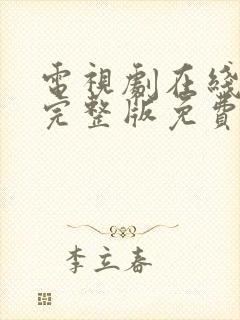 電視劇在綫
完整版免費
李立春